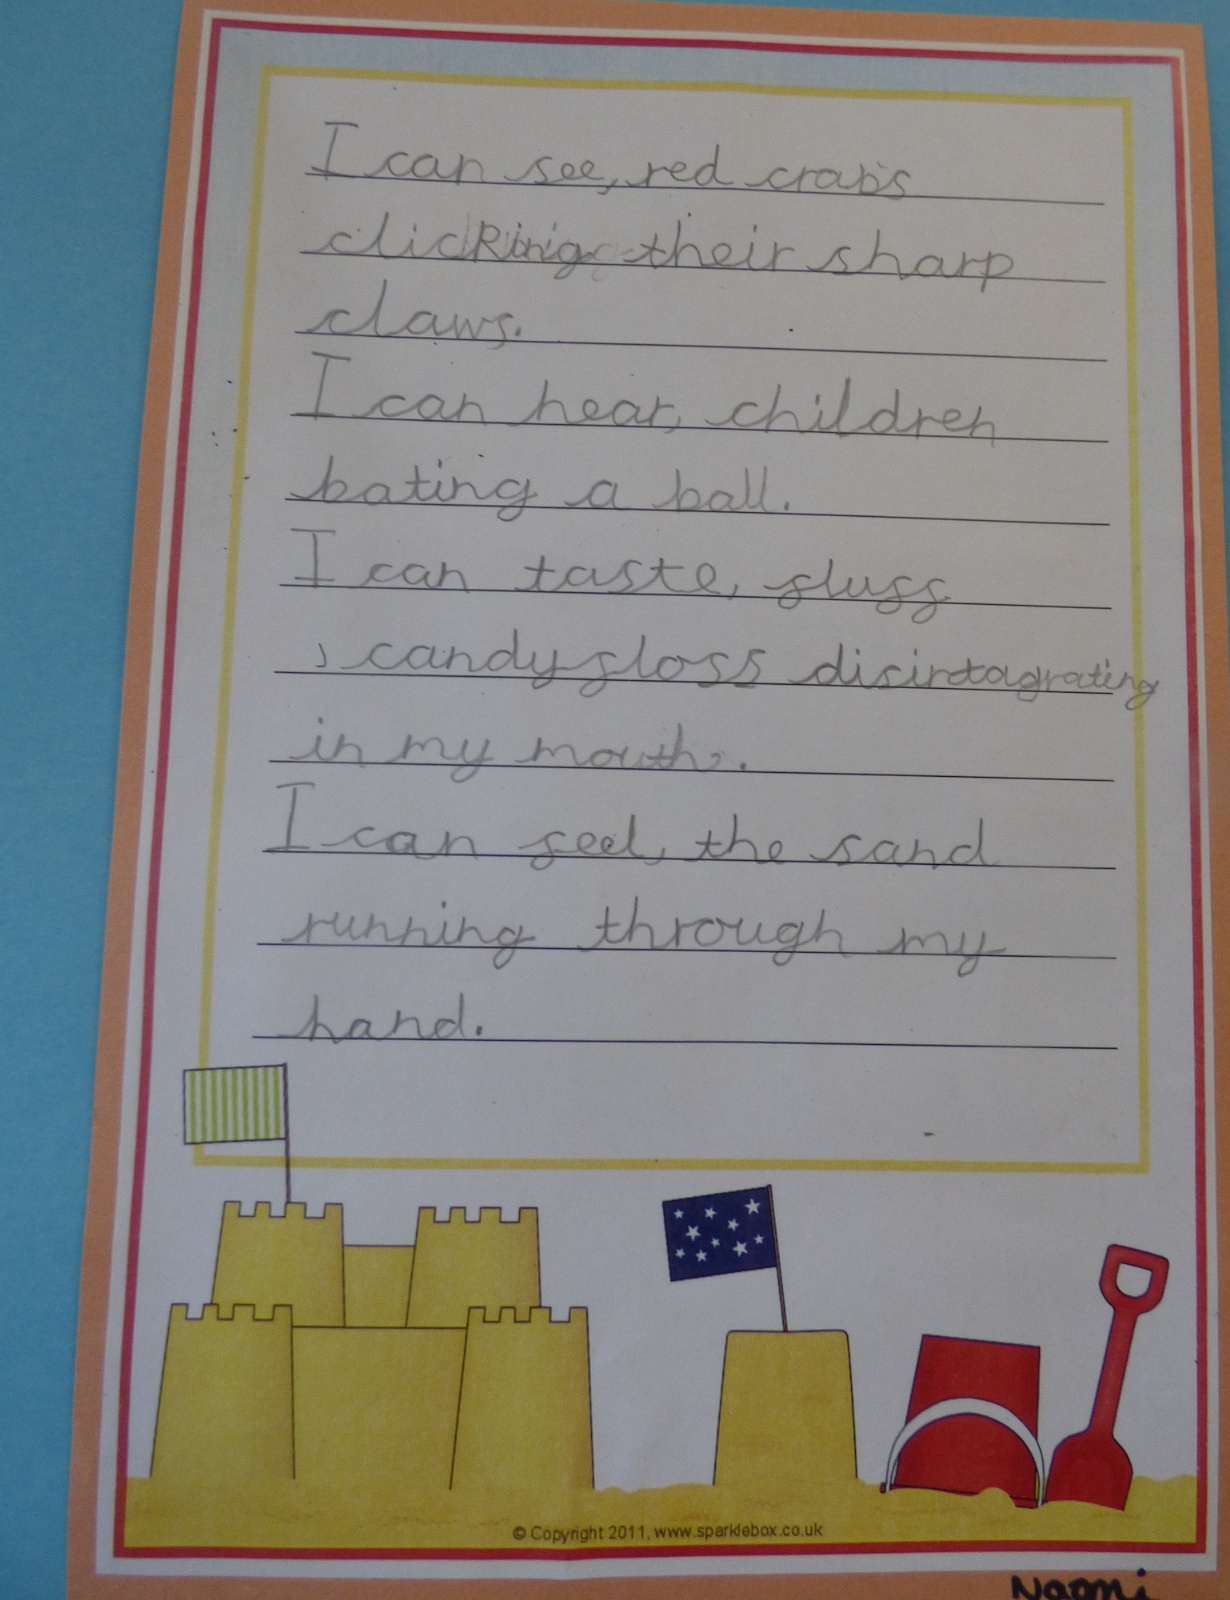 I can see, red crabs
clicking their sharp
claws.
I can hear, children
bating a ball.
I can taste, fluff
, candyfloss disintagrating
in my mouth.
I can feel, the sand
running through my
hand.
© Copyright 2011, www.sparklebox.co.uk
Naomi